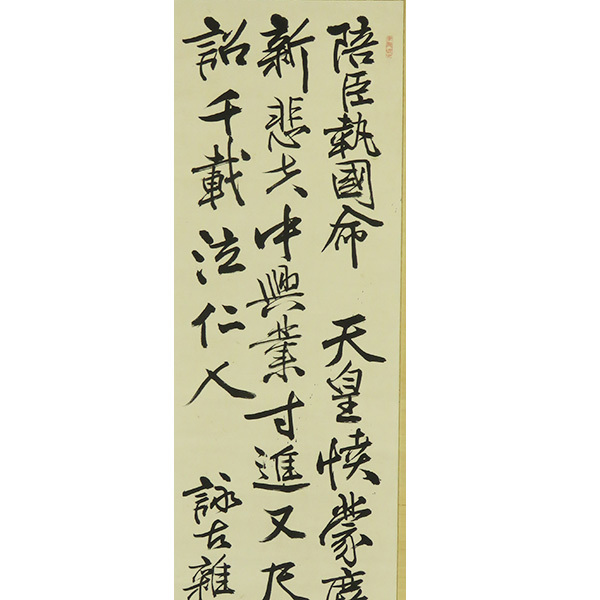 陪臣執國命 天皇憤蒙塵
新悲夫中興業寸進又尺
詔千載泣仁人 詠古雜